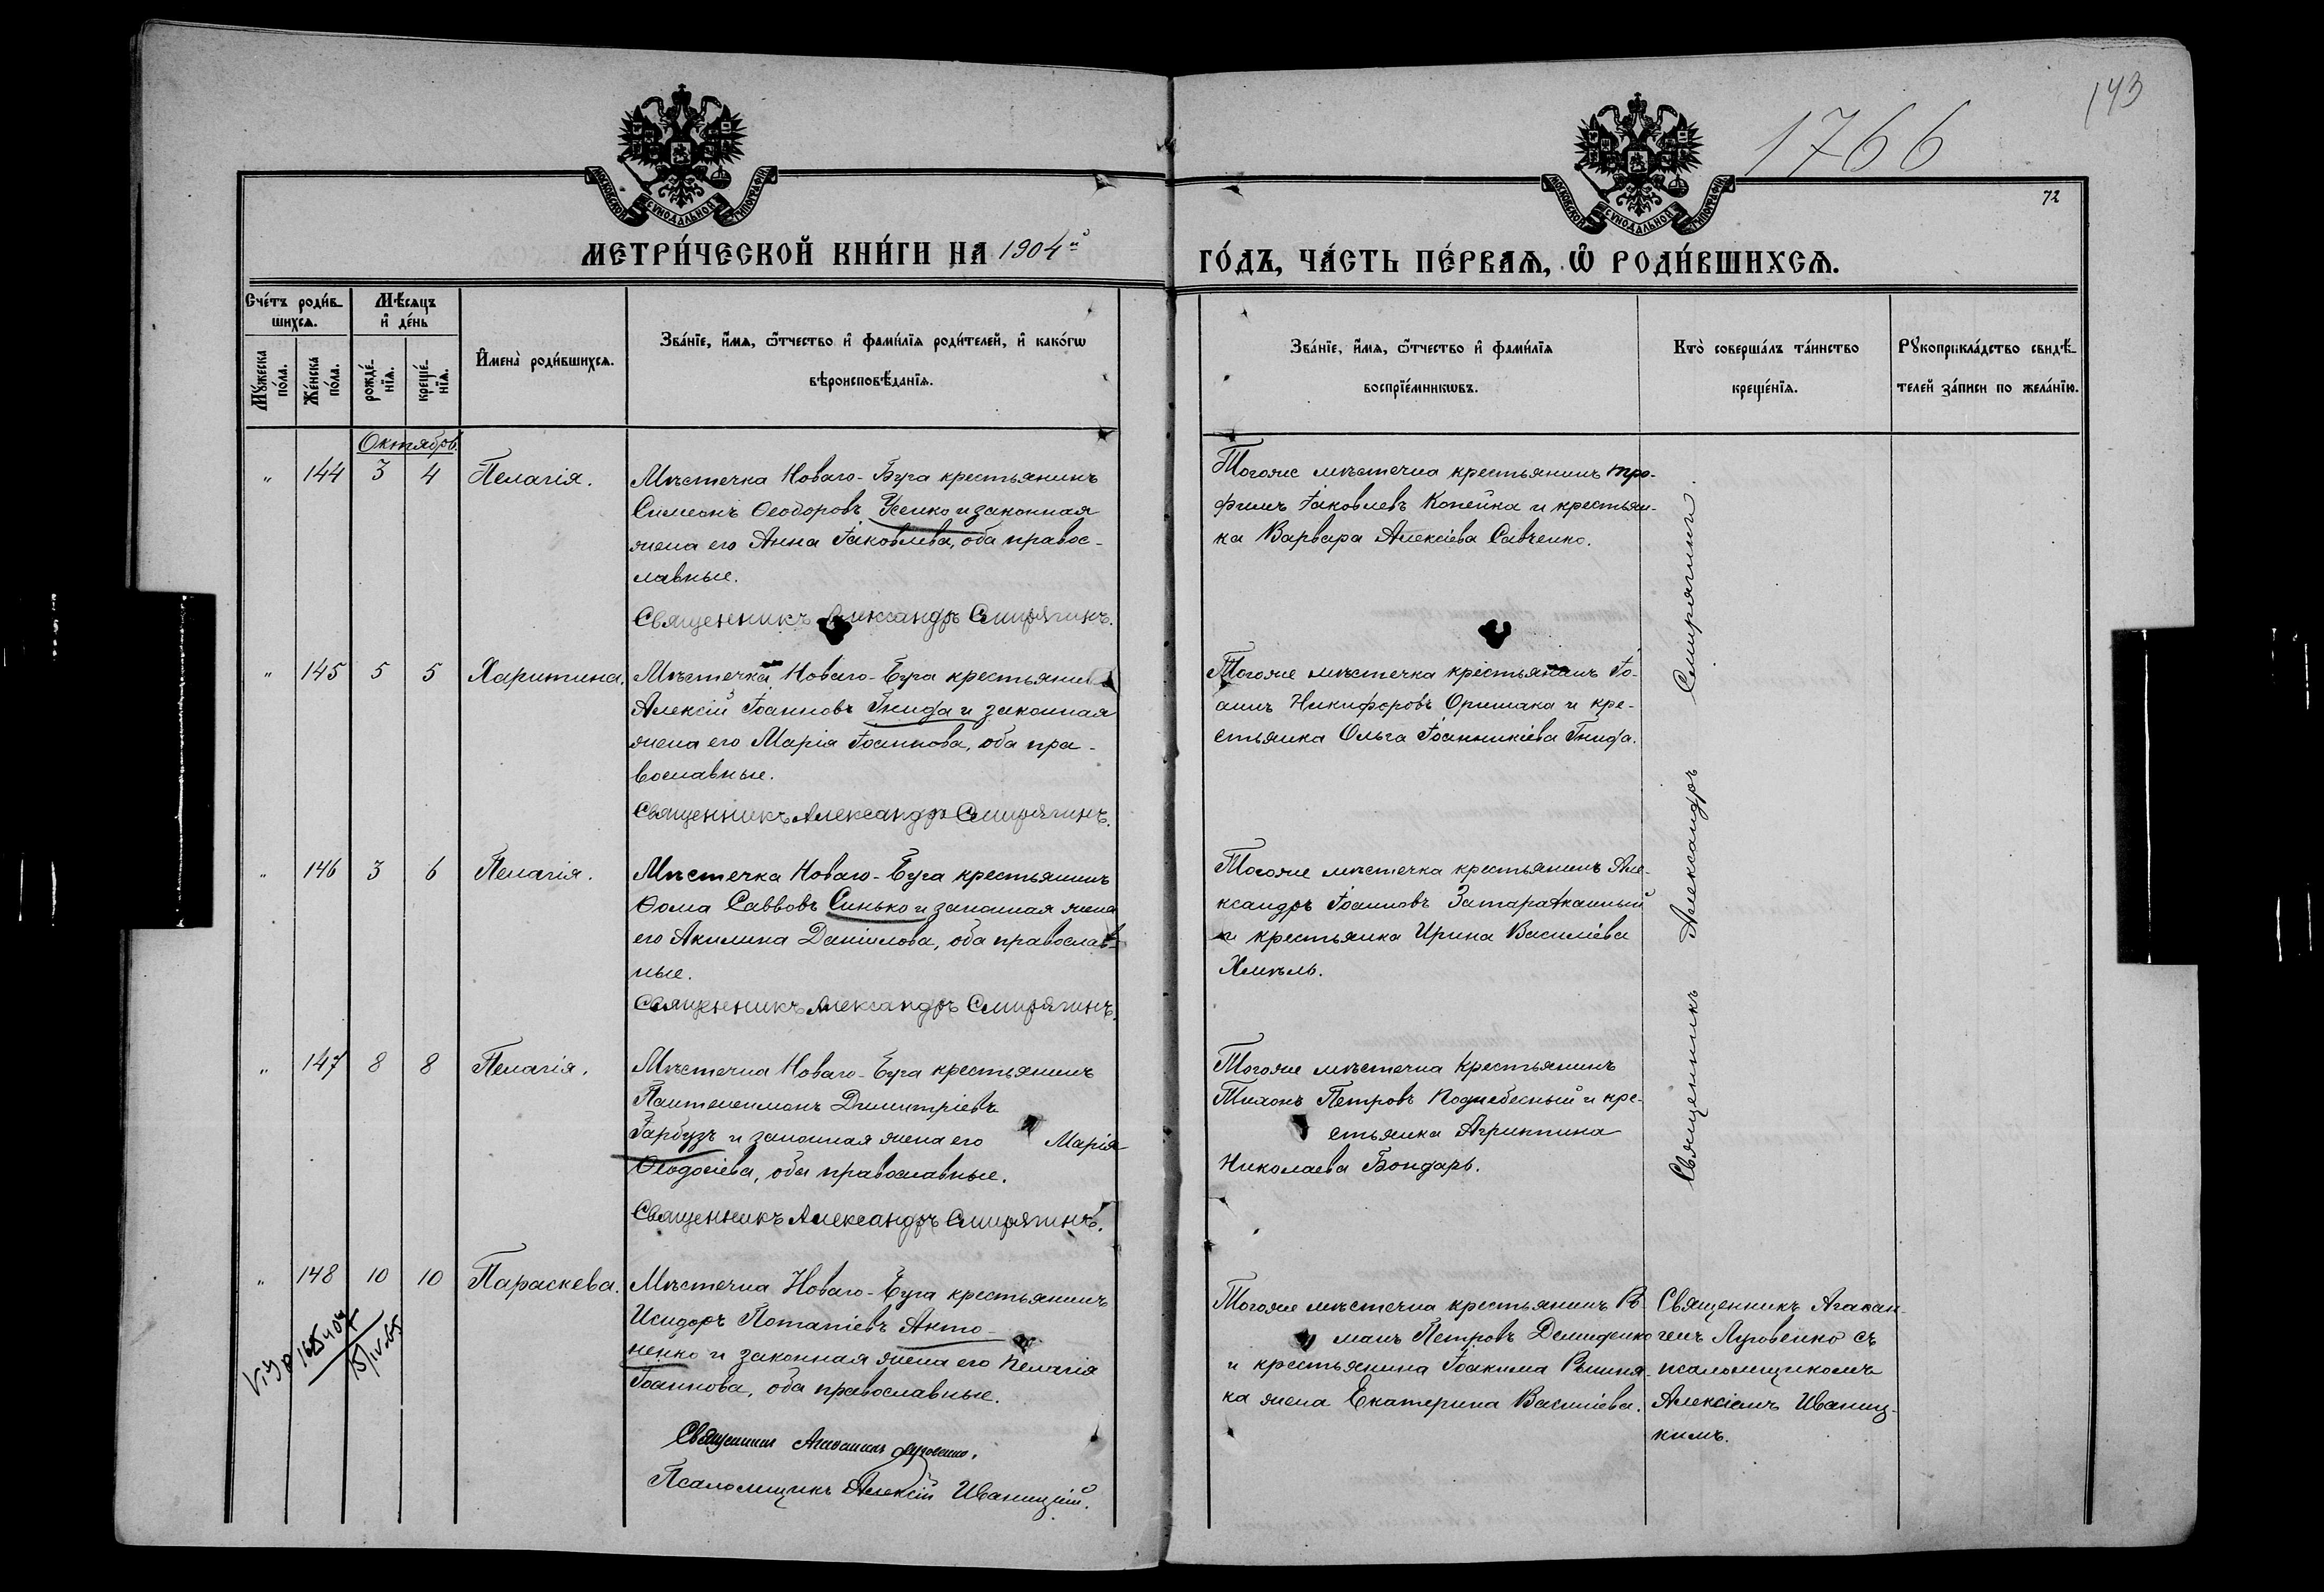 1766
143
72
МОСКОВСКОЙ СѴНОДАЛЬНОЙ ТИПОГРАФІИ
МОСКОВСКОЙ СѴНОДАЛЬНОЙ ТИПОГРАФІИ
МЕТРИ́ЧЕСКОЙ КНИ́ГИ НА 1904й
ГО́ДЪ, ЧА́СТЬ ПЕ́РВАѦ, Ѽ РОДИ́ВШИХСѦ.
Сче́тъ роди́в-
шихсѧ.
Мѣ́сяцъ
и҆ де́нь
Мꙋ́жеска
по́ла.
Же́нска
по́ла.
рожде́-
нїѧ.
креще́-
нїѧ.
И҆мена̀ роди́вшихсѧ.
Зва́нїе, и҆́мѧ, ѻ҆́тчество и҆ фами́лїѧ роди́телей, и҆ како́гѡ
вѣроисповѣ́данїѧ.
Зва́нїе, и҆́мѧ, ѻ҆́тчество и҆ фами́лїѧ
воспрїе́мникѡвъ.
Кто̀ соверша́лъ та́инство
креще́нїѧ.
Рꙋкоприкла́дство свидѣ́-
телей за́писи по жела́нїю.
Октябрь.
" 144 3 4 Пелагія.
Мѣстечка Новаго-Буга крестьянинъ
Симеонъ Ѳеодоровъ Усенко и законная
жена его Анна Іаковлева, оба правос-
лавные.
Священникъ Александръ Смирягинъ.
Тогоже мѣстечка крестьянинъ Тро-
фимъ Іаковлевъ Копейка и крестьян-
ка Варвара Алексіева Савченко.
" 145 5 5 Харитина.
Мѣстечка Новаго-Буга крестьянинъ
Алексій Іоанновъ Гнида и законная
жена его Марія Іоаннова, оба пра-
вославные.
Священникъ Александръ Смирягинъ.
Тогоже мѣстечка крестьянинъ Іо-
аннъ Никифоровъ Оришака и кре-
стьянка Ольга Іоанникіева Гнида.
" 146 3 6 Пелагія.
Мѣстечка Новаго-Буга крестьянинъ
Ѳома Саввовъ Синько и законная жена
его Акилина Даніилова, оба православ-
ные.
Священникъ Александръ Смирягинъ.
Тогоже мѣстечка крестьянинъ Але-
ксандръ Іоанновъ Затараканный
и крестьянка Ирина Василіева
Хмѣль.
" 147 8 8 Пелагія.
Мѣстечка Новаго-Буга крестьянинъ
Пантелеимонъ Димитріевъ
Гарбузъ и законная жена его Марія
Ѳеодосіева, оба православные.
Священникъ Александръ Смирягинъ.
Тогоже мѣстечка крестьянинъ
Тихонъ Петровъ Поднебесный и кре-
стьянка Агриппина
Николаева Бондарь.
Священникъ Александръ Смирягинъ.
" 148 10 10 Параскева.
Мѣстечка Новаго-Буга крестьянинъ
Исидоръ Потапіевъ Анто-
ненко и законная жена его Пелагія
Іоаннова, оба православные.
Священникъ Агаѳангелъ Луговенко.
Псаломщикъ Алексій Иваницкій.
Тогоже мѣстечка крестьянинъ Ро-
манъ Петровъ Демиденко
и крестьянина Іоакима
ка жена Екатерина Василіева.
Священникъ Агаѳан-
гелъ Луговенко съ
псаломщикомъ
Алексіемъ Иваниц-
кимъ.